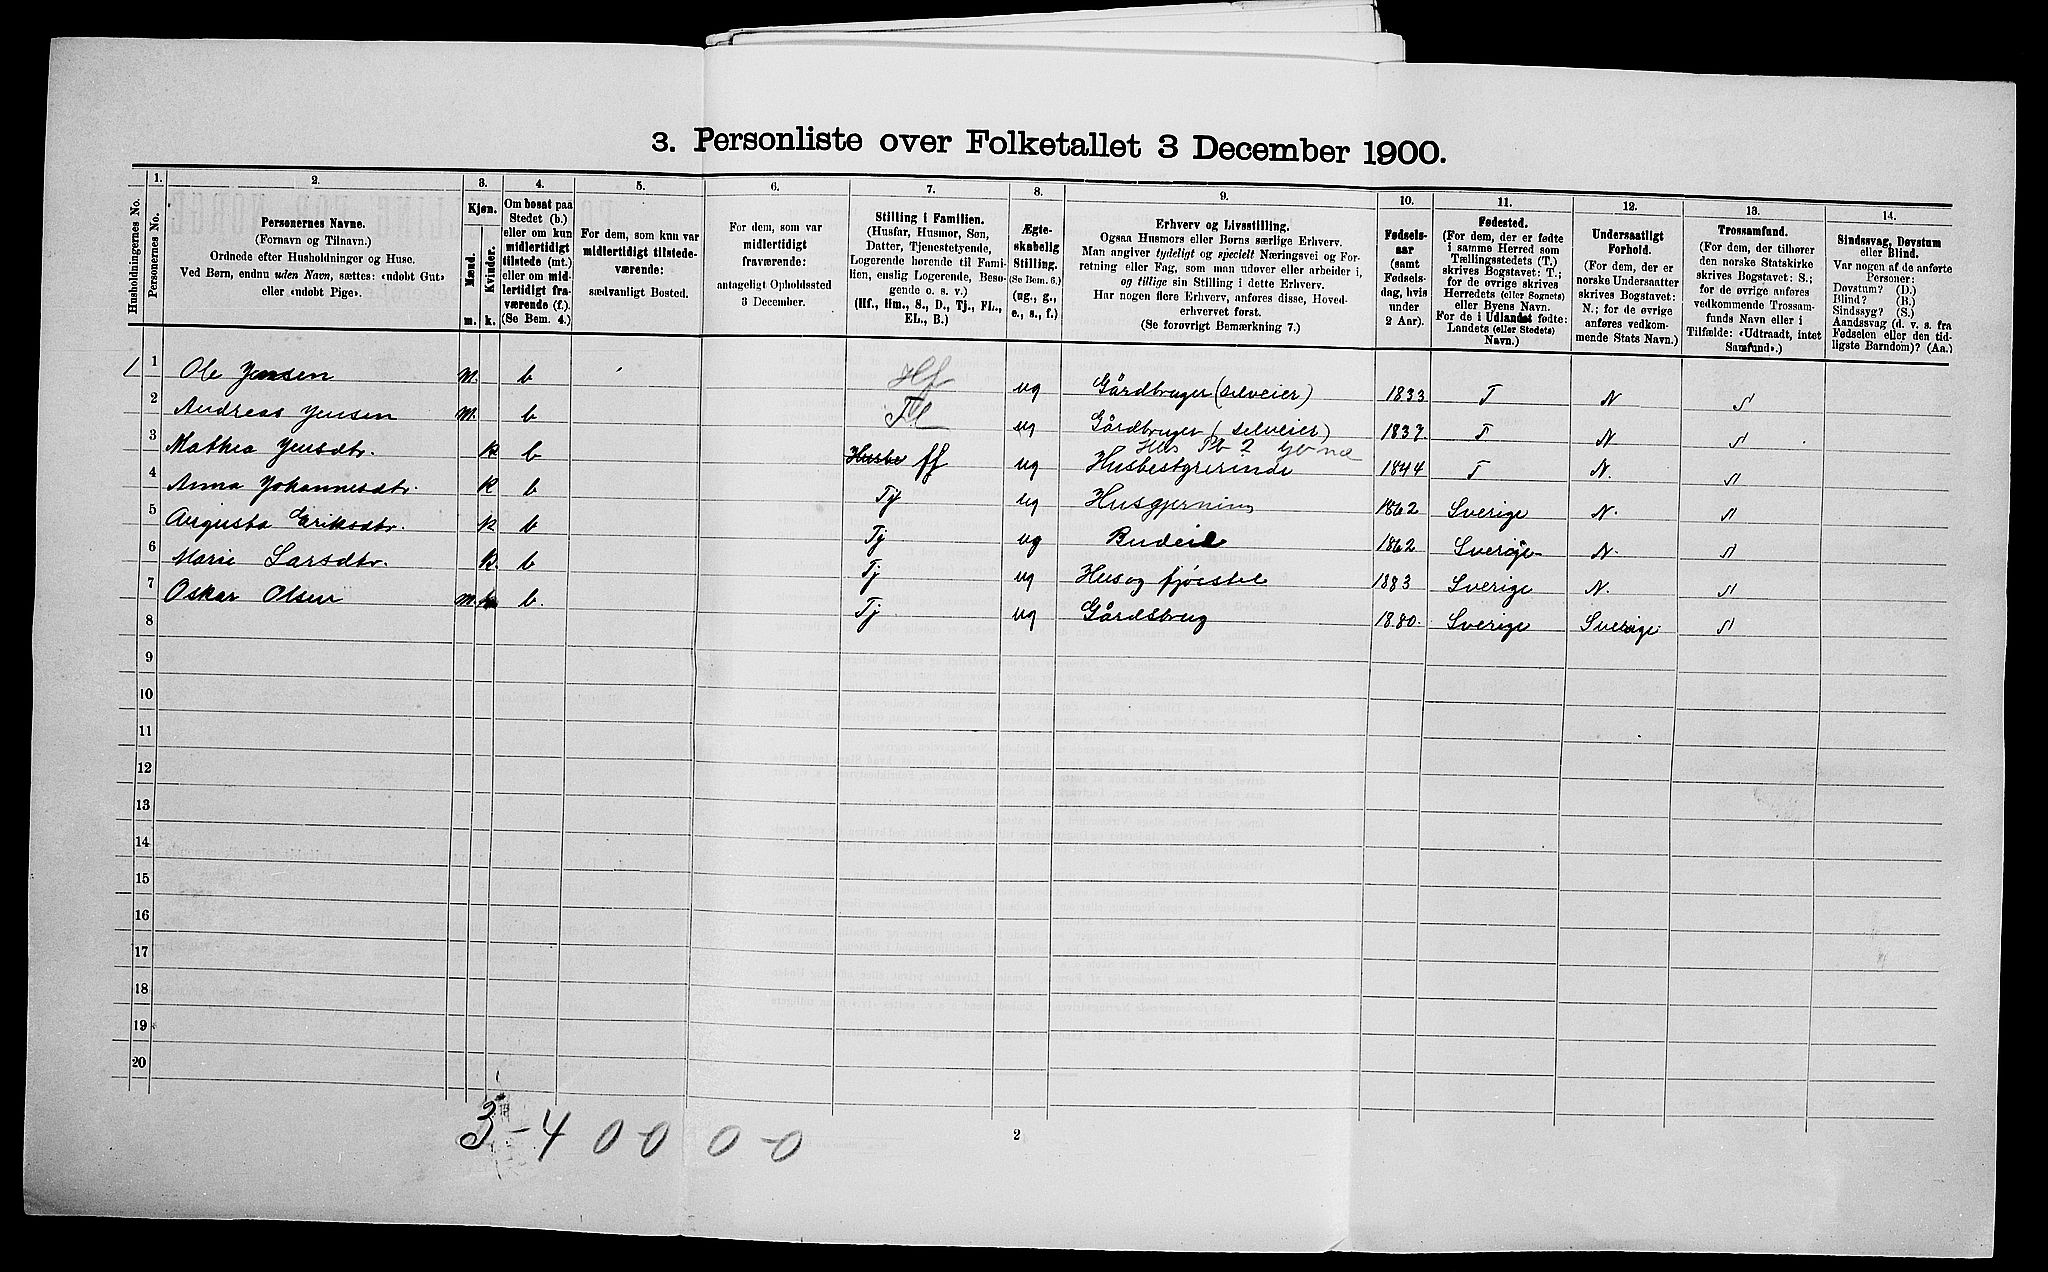 3. Personliste over Folketallet 3 December 1900.
Husholdningernes No.
1.
Personernes No.
2.
Personernes Navne.
(Fornavn og Tilnavn.)
Ordnede efter Husholdninger og Huse.
Ved Børn, endnu uden Navn, sættes: «udøbt Gut»
eller «udøbt Pige».
3.
Kjøn.
Mænd.
Kvinder.
m.
k.
4.
Om bosat paa
Stedet (b.)
eller om kun
midlertidigt
tilstede (mt.)
eller om mid-
lertidigt fra-
værende (f.).
(Se Bem. 4.)
5.
For dem, som kun var
midlertidigt tilstede-
værende:
sædvanligt Bosted.
6.
For dem, som var
midlertidigt
fraværende:
antageligt Opholdssted
3 December.
7.
Stilling i Familien.
(Husfar, Husmor, Søn,
Datter, Tjenestetyende,
Logerende hørende til Fami-
lien, enslig Logerende, Besø-
gende o. s. v.)
(Hf., Hm., S., D., Tj., FL.,
EL., B.)
8.
Ægte-
skabelig
Stilling.
(Se Bem. 6.)
(ug., g.,
e., s., f.)
9.
Erhverv og Livsstilling.
Ogsaa Husmors eller Børns særlige Erhverv.
Man angiver tydeligt og specielt Næringsvei og For-
retning eller Fag, som man udøver eller arbeider i,
og tillige sin Stilling i dette Erhverv.
Har nogen flere Erhverv, anføres disse, Hoved-
erhvervet først.
(Se forøvrigt Bemærkning 7.)
10.
Fødsels-
aar
(samt
Fødsels-
dag, hvis
under
2 Aar).
11.
Fødested.
(For dem, der er fødte
i samme Herred som
Tællingsstedets (T.)
skrives Bogstavet: T.;
for de øvrige skrives
Herredets (eller Sognets)
eller Byens Navn.
For de i Udlandet fødte:
Landets (eller Stedets)
Navn.)
12.
Undersaatligt
Forhold.
(For dem, der er
norske Undersaatter
skrives Bogstavet:
N.; for de øvrige
anføres vedkom-
mende Stats Navn.)
13.
Trossamfund.
(For dem, der tilhører
den norske Statskirke
skrives Bogstavet: S.;
for de øvrige anføres
vedkommende Trossam-
funds Navn eller i
Tilfælde: «Udtraadt, intet
Samfund».)
14.
Sindssvag, Døvstum
eller Blind.
Var nogen af de anførte
Personer:
Døvstum? (D.)
Blind? (B.)
Sindssyg? (S.)
Aandssvag (d. v. s. fra
Fødselen eller den tid-
ligste Barndom)? (Aa.)
1 1 Ole Jensen m. b Hf ug Gårdbruger (selveier) 1833 T N S
2 Andreas Jensen m. b Fl ug Gårdbruger (selveier) 1837. T N S
3 Mathea Jensdtr. k b Husbe ff ug Husbestyrerinde 1844 T N. S
4 Anna Johannesdtr. k b Tj ug Husgjerning 1862 Sverige N. S
5 Augusta Eriksdtr. k b Tj ug Budeie 1862 Sverige N. S
6 Marie Larsdtr. k. b Tj ug Hus og fjøsstel 1883 Sverige N. S
7 Oskar Olsen m. b. Tj ug Gårdsbrug 1880. Sverige Sverige S
8
9
10
11
12
13
14
15
16
17
18
19
20
3-4 0-0 0-0
2